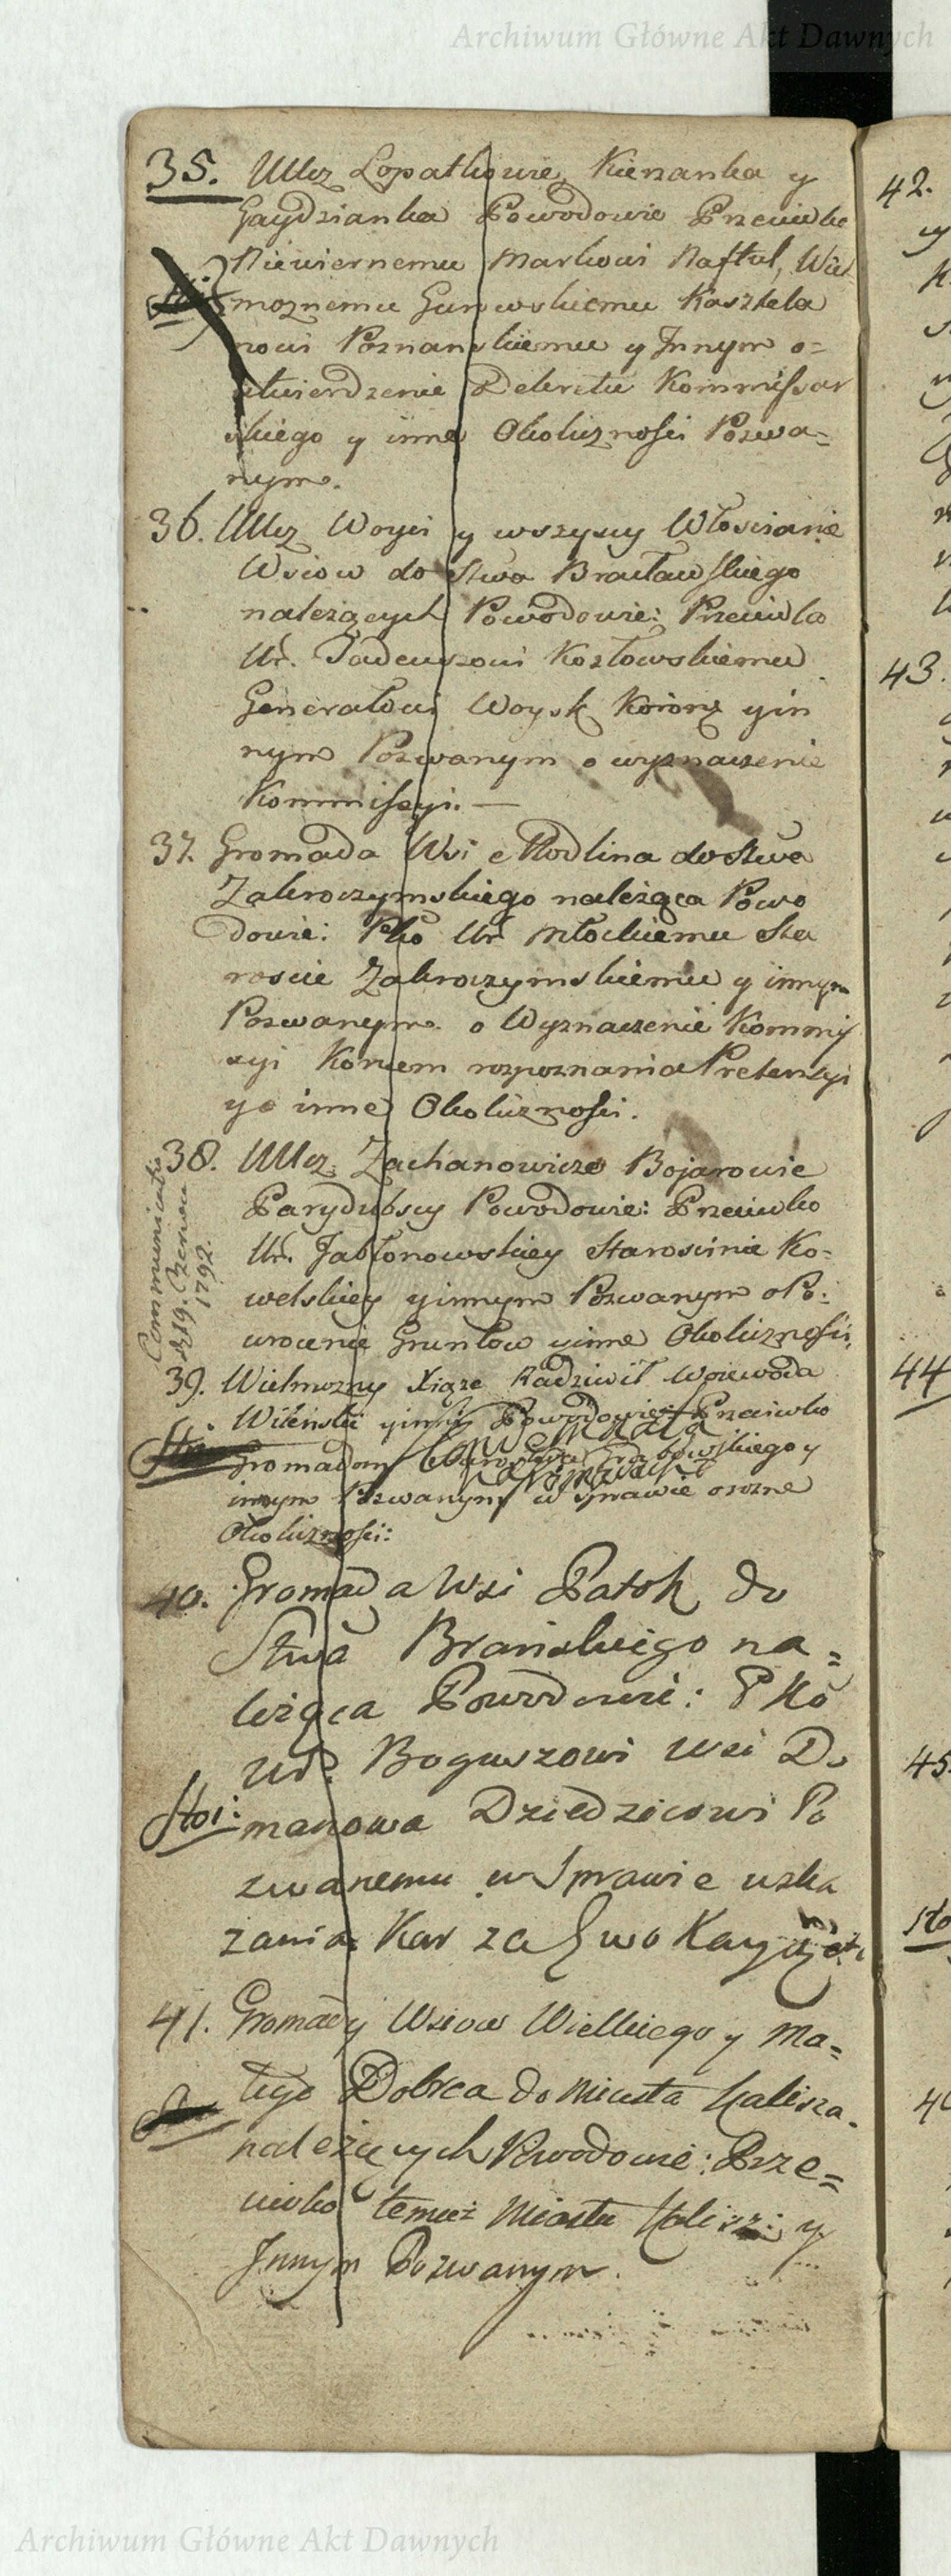 Archiwum Główne Akt Dawnych
35. Ucz Łopatkowie, Kierzanka y
Gaydzianka Powodowie Przeciwko
Niewiernemu Markowi Naftul, Wiel
Stoi: możnemu Gurowskiemu Kasztela
nowi Poznanskiemu y Jnnym o=
utwierdzenie Dekretu Kommissar
skiego y inne Okolicznosci Pozwa=
nym.
36. Ucz Woyci y wszyscy Włoscianie
Wsiow do Stwa Bracławskiego
należących Powodowie: Przeciwko
Ur. Tadeuszowi Kozłowskiemu
Generałowi Woysk Koronz yin
nym Pozwanym o wyznaczenie
Kommissyi. —
37. Gromada Wsi Modlina do Stwa
Zakroczymskiego należąca Powo
dowie: Pko Ur Młockiemu Sta
roscie Zakroczymskiemu y innym
Pozwanym o Wyznaczenie Kommis
syi Koncem rozpoznania Pretensyi
yo inne Okoliczności.
Communicatio
d. 19. Czerwca
1792.
38. Ucz. Zachanowicze Bojarowie
Parydubscy Powodowie: Przeciwko
Ur. Jabłonowskiey Starościnie Ko=
welskiey yinnym Pozwanym o Po:
wrocenie Gruntow yinne Okoliczności,
39. Wielmozny Xiąze Radziwił Woiewoda
Wilenski yinni Powodowie: Przeciwko
Stoi: Gromadom Starostwa y
innym Pozwanym w Sprawie orozne
Okoliczności:
40. Gromada Wsi Patok do
Stwa Branskiego na=
leżąca Powodowie: Pko
Ur. Boguszowi Wsi Do
Stoi: manowa Dziedzicowi Po
zwanemu w Sprawie uska
zania Kar za Ewo Kacyą etc
41. Gromady Wsiow Wielkiego y Ma=
łego Dobrca do Miasta Kalisza.
należących Powodowie: Prze=
ciwko temuż Miastu Kalisz: y
Jnnym Pozwanym.
42.
43.
44
45.
Sto
Archiwum Główne Akt Dawnych